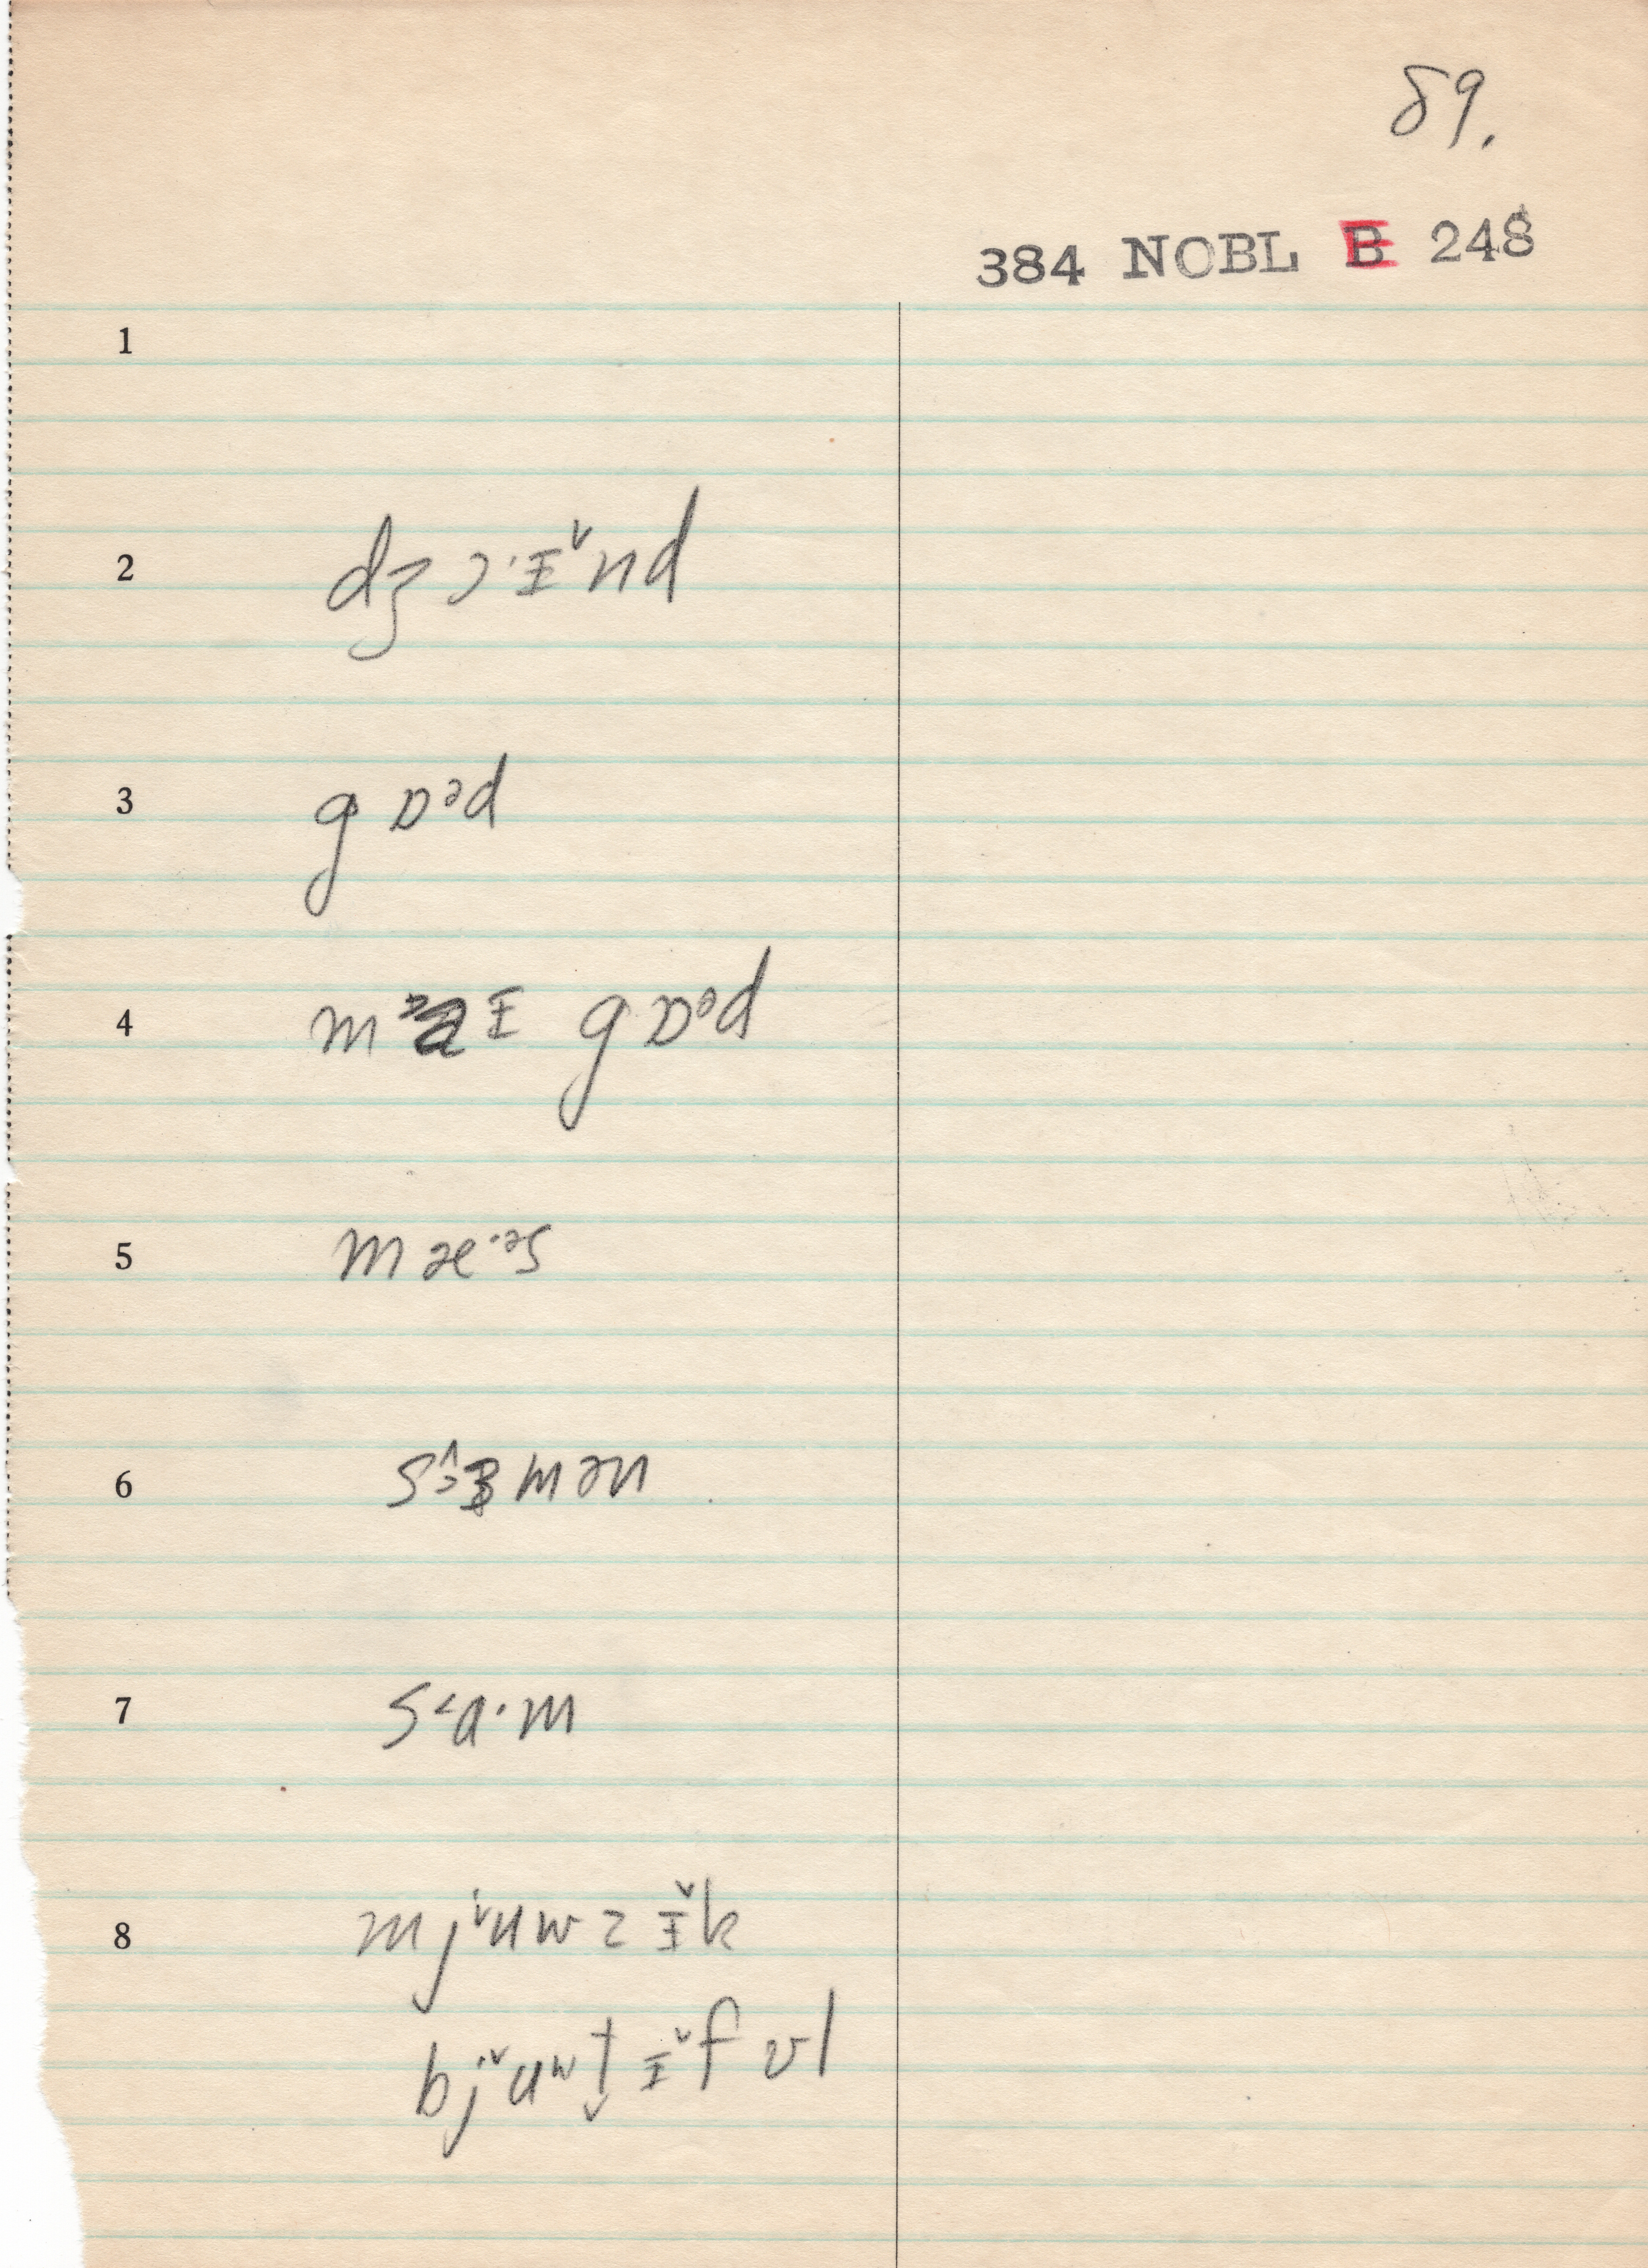 89.
384 NOBL B 248
1
2 dʒɔ·ɪ˅nd
3 gɒᵊd
4 m aɪ gɒᵊd
5 mæ·ᵊs
6 mən
7 s˂ɑ·m
8 mj˅uwzɪ̆k
bj˅uʷt̬ɪ˅fʊl